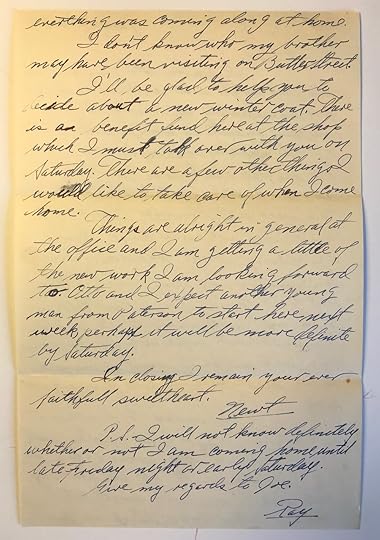 everthing was comming along at home.
I don't know who my brother
may have been visiting on Butler Street.
I'll be glad to help you to
decide about a new winter coat. There
is a benefit fund here at the shop
which I must talk over with you on
Saturday. There are a few other things I
would like to take care of when I come
home.
Things are alright in general at
the office and I am getting a little of
the new work I am looking forward
to. Otto and I expect another young
man from Paterson to start here next
week perhaps it will be more definite
by Saturday.
In closing I remain your ever
faithfull sweetheart.
Newt
P.S. I will not know definitely
whether or not I am coming home until
late Friday night or early Saturday.
Give my regards to Joe.
Ray